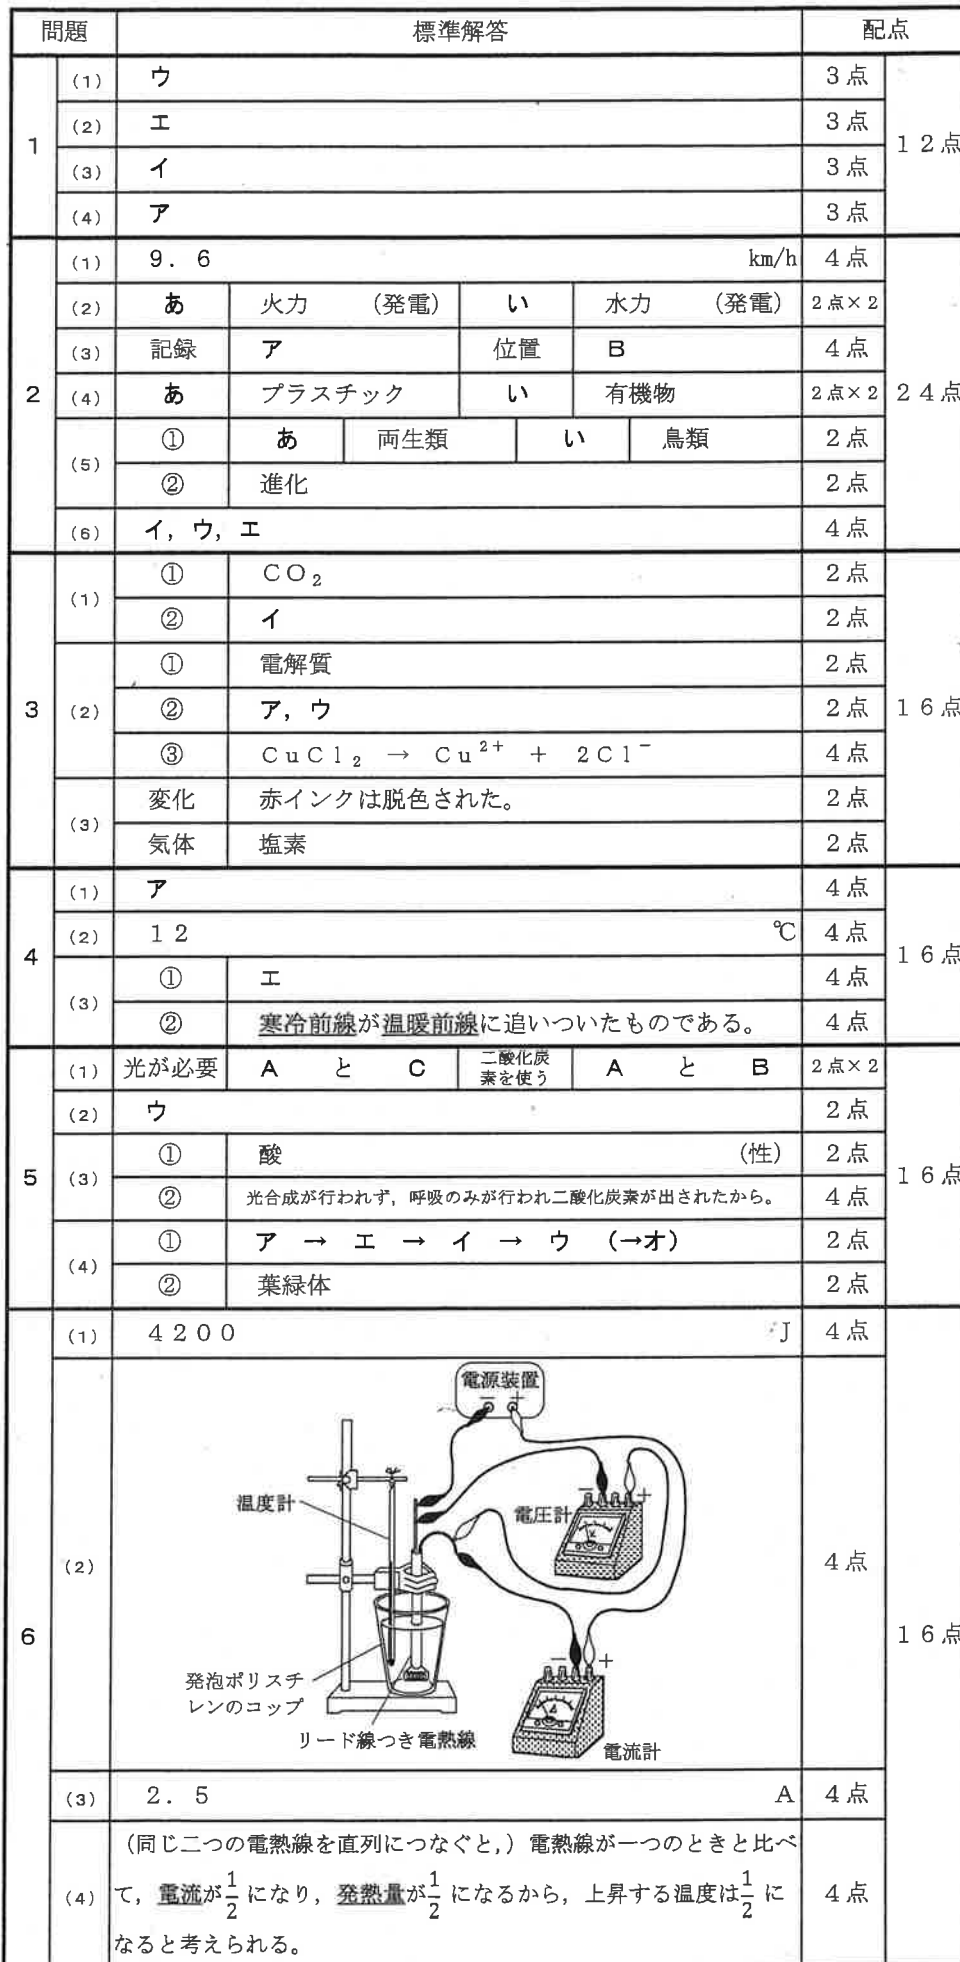 問題 標準解答 配点
1 12点
(1) ウ 3点
(2) エ 3点
(3) イ 3点
(4) ア 3点
2 24点
(1) 9.6 km/h 4点
(2) あ 火力 (発電) い 水力 (発電) 2点×2
(3) 記録 ア 位置 B 4点
(4) あ プラスチック い 有機物 2点×2
(5) ① あ 両生類 い 鳥類 2点
② 進化 2点
(6) イ，ウ，エ 4点
3 16点
(1) ① CO₂ 2点
② イ 2点
(2) ① 電解質 2点
② ア，ウ 2点
③ CuCl₂ → Cu²⁺ + 2Cl⁻ 4点
(3) 変化 赤インクは脱色された。 2点
気体 塩素 2点
4 16点
(1) ア 4点
(2) 12 ℃ 4点
(3) ① エ 4点
② 寒冷前線が温暖前線に追いついたものである。 4点
5 16点
(1) 光が必要 A と C 二酸化炭
素を使う A と B 2点×2
(2) ウ 2点
(3) ① 酸 (性) 2点
② 光合成が行われず，呼吸のみが行われ二酸化炭素が出されたから。 4点
(4) ① ア → エ → イ → ウ (→オ) 2点
② 葉緑体 2点
6 16点
(1) 4200 J 4点
(2) 4点
電源装置
− +
温度計
− +
電圧計
V
発泡ポリスチ
レンのコップ
リード線つき電熱線
− +
A
電流計
(3) 2.5 A 4点
(4) 4点
(同じ二つの電熱線を直列につなぐと，) 電熱線が一つのときと比べ
て，電流が1/2 になり，発熱量が1/2 になるから，上昇する温度は1/2 に
なると考えられる。